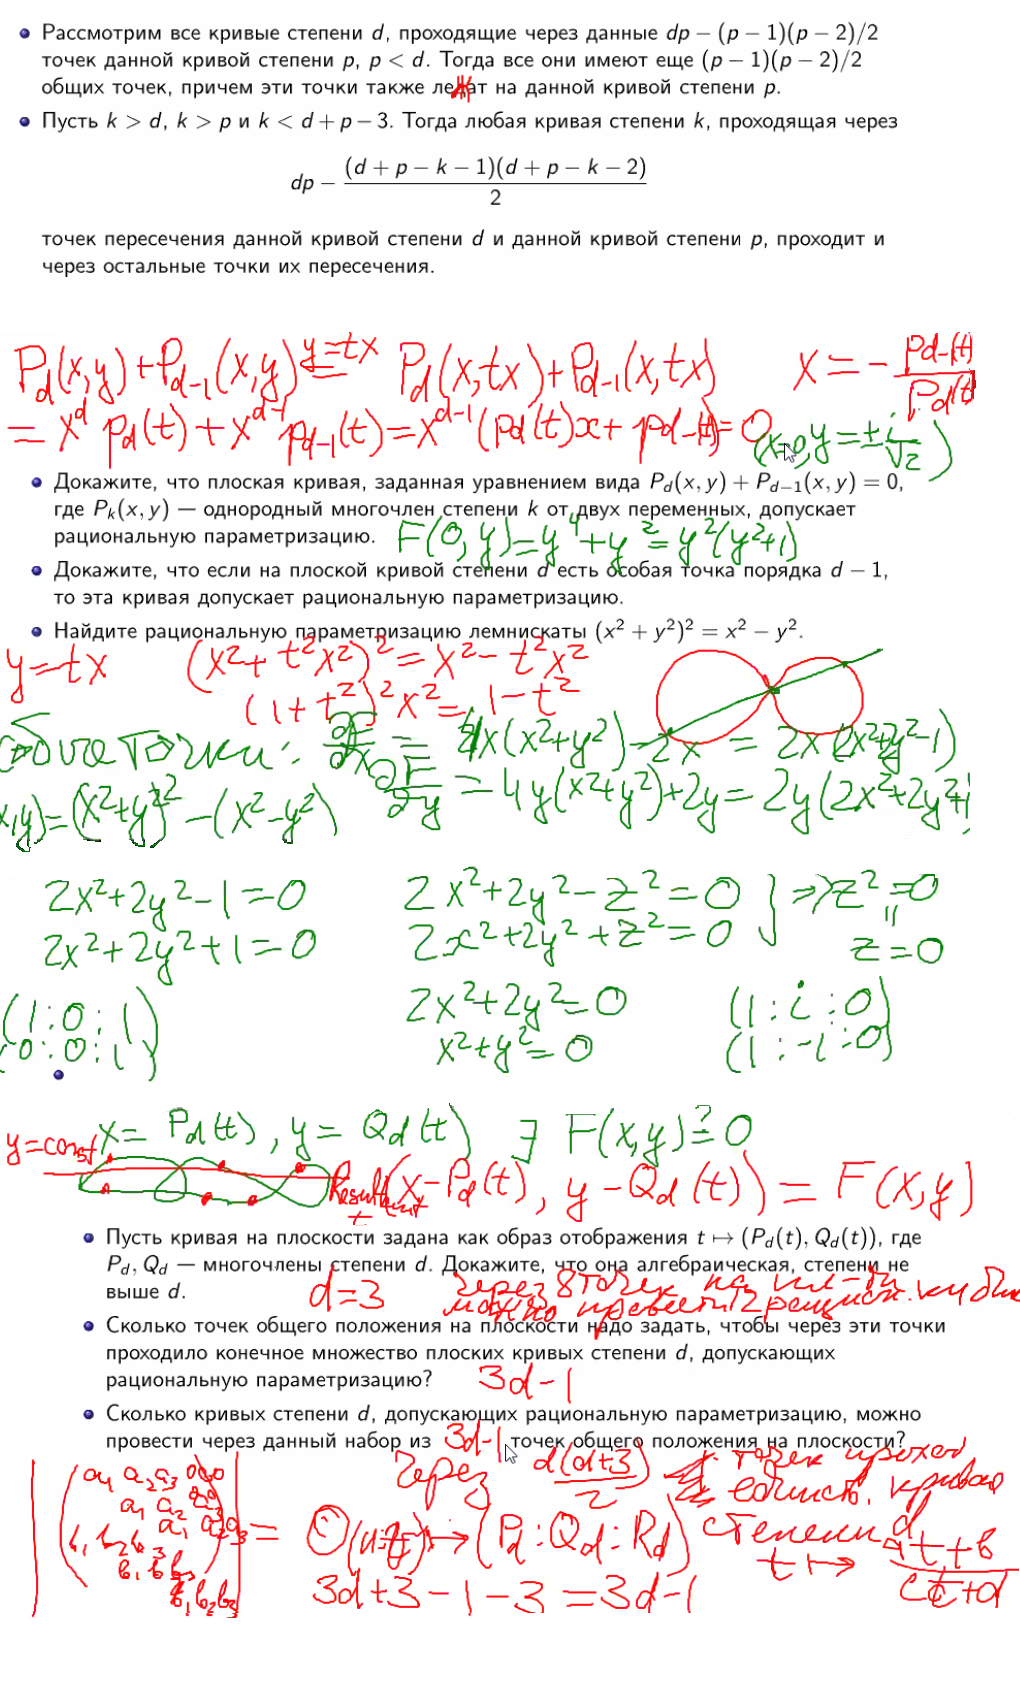 • Рассмотрим все кривые степени d, проходящие через данные dp − (p − 1)(p − 2)/2
точек данной кривой степени p, p < d. Тогда все они имеют еще (p − 1)(p − 2)/2
общих точек, причем эти точки также лежат на данной кривой степени p.
• Пусть k > d, k > p и k < d + p − 3. Тогда любая кривая степени k, проходящая через
dp − (d + p − k − 1)(d + p − k − 2) / 2
точек пересечения данной кривой степени d и данной кривой степени p, проходит и
через остальные точки их пересечения.
P_d(x,y)+P_{d-1}(x,y) y=tx P_d(x,tx)+P_{d-1}(x,tx) x = − p_{d-1}(t) / p_d(t)
= x^d p_d(t) + x^{d-1} p_{d-1}(t) = x^{d-1}(p_d(t)x + p_{d-1}(t)) = 0 (x=0, y = ± i/√2)
• Докажите, что плоская кривая, заданная уравнением вида P_d(x, y) + P_{d−1}(x, y) = 0,
где P_k(x, y) — однородный многочлен степени k от двух переменных, допускает
рациональную параметризацию. F(0,y)=y⁴+y²=y²(y²+1)
• Докажите, что если на плоской кривой степени d есть особая точка порядка d − 1,
то эта кривая допускает рациональную параметризацию.
• Найдите рациональную параметризацию лемнискаты (x² + y²)² = x² − y².
y=tx (x²+t²x²)² = x²−t²x²
(1+t²)²x² = 1−t²
особые точки: ∂F/∂x = 4x(x²+y²)−2x = 2x(2x²+2y²−1)
x,y)=(x²+y²)²−(x²−y²) ∂F/∂y = 4y(x²+y²)+2y = 2y(2x²+2y²+1
2x²+2y²−1=0 2x²+2y²−z²=0 } ⇒ z²=0
2x²+2y²+1=0 2x²+2y²+z²=0 z=0
(1:0:1) 2x²+2y²=0 (1:i:0)
(0:0:1) x²+y²=0 (1:−i:0)
•
x= P_d(t), y= Q_d(t) ∃ F(x,y) ≟ 0
y=const Resultant_t(x−P_d(t), y−Q_d(t)) = F(x,y)
• Пусть кривая на плоскости задана как образ отображения t ↦ (P_d(t), Q_d(t)), где
P_d, Q_d — многочлены степени d. Докажите, что она алгебраическая, степени не
выше d. d=3 Через 8 точек на пл-ти
можно провести 12 рацион. кубик
• Сколько точек общего положения на плоскости надо задать, чтобы через эти точки
проходило конечное множество плоских кривых степени d, допускающих
рациональную параметризацию? 3d−1
• Сколько кривых степени d, допускающих рациональную параметризацию, можно
провести через данный набор из 3d−1 точек общего положения на плоскости?
Через d(d+3)/2 точек проход
единств. кривая
степени d
a₁ a₂ a₃ 0 0 0
a₁ a₂
a₁ a₂ a₃ = 0 ↦ (P_d : Q_d : R_d)
b₁ b₂ b₃
b₁ b₂ b₃ t ↦ at+b / ct+d
b₁ b₂ b₃ 3d+3−1−3 = 3d−1